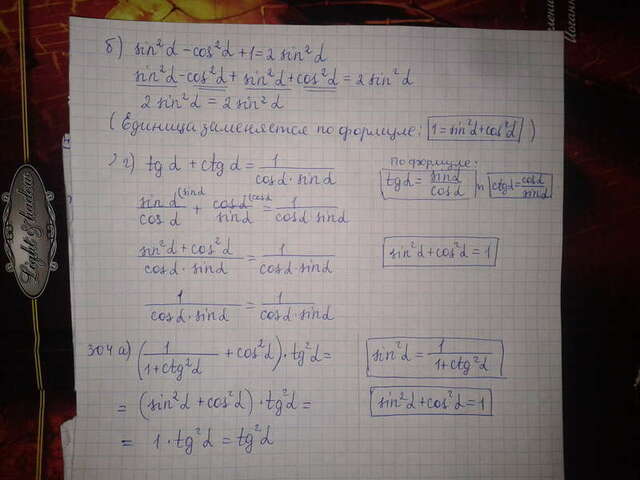 б) sin²α - cos²α + 1 = 2 sin²α
sin²α - cos²α + sin²α + cos²α = 2 sin²α
2 sin²α = 2 sin²α
(Единица заменяется по формуле: 1 = sin²α + cos²α )
г) tgα + ctgα = 1/(cosα · sinα)
По формуле:
tgα = sinα/cosα и ctgα = cosα/sinα
sinα/cosα (sinα + cosα/sinα (cosα = 1/(cosα · sinα)
(sin²α + cos²α)/(cosα · sinα) = 1/(cosα · sinα)
sin²α + cos²α = 1
1/(cosα · sinα) = 1/(cosα · sinα)
304 а) (1/(1 + ctg²α) + cos²α) · tg²α =
sin²α = 1/(1 + ctg²α)
= (sin²α + cos²α) · tg²α =
sin²α + cos²α = 1
= 1 · tg²α = tg²α